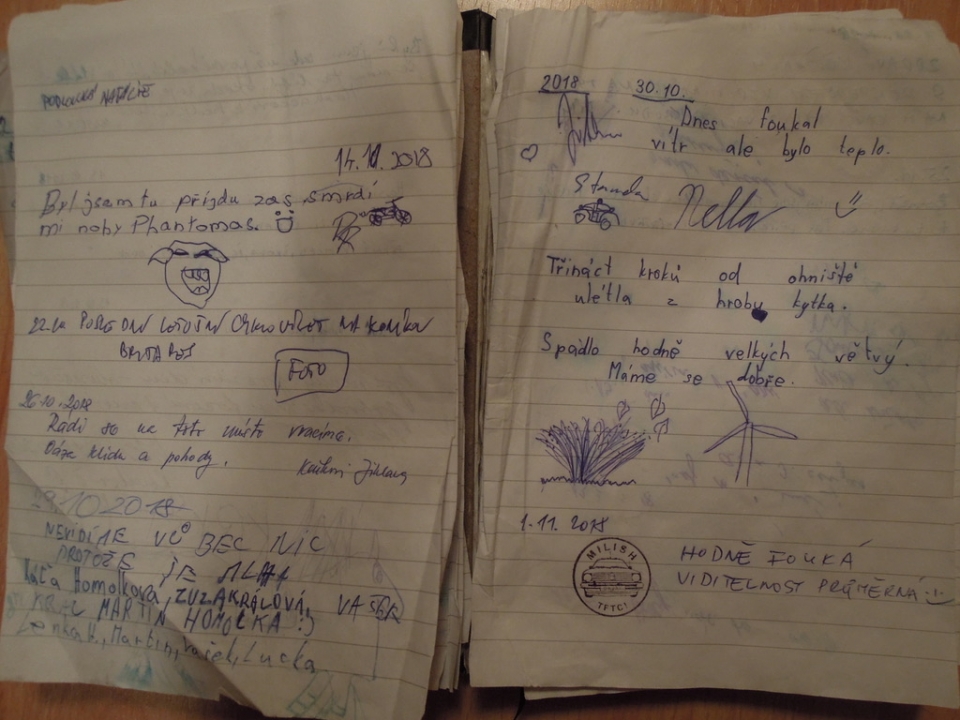 PODLUCKÁ NATÁLIE
14.10.2018
Byl jsem tu přijdu zas smrdí
mi nohy Phantomas.
22.10 POSLEDNÍ LETOŠNÍ NA
FOTO
26.10.2018
Rádi se na toto místo vracíme.
Oáza klidu a pohody.
29.10 2018
NEVIDÍME VŮBEC NIC
PROTOŽE JE MLHA
Káťa Homolková, ZUZA KRÁLOVÁ, VAŠEK
KRÁL MARTIN HOMOLKA :)
Lenka H., Martin, Vašek, Lucka
2018 30.10.
Dnes foukal
vítr ale bylo teplo.
Standa Nella
Třináct kroků od ohniště
ulétla z hrobu kytka.
Spadlo hodně velkých větvý.
Máme se dobře.
1.11.2018
MILISH
TFTC!
HODNĚ FOUKÁ
VIDITELNOST PRŮMĚRNÁ :-)